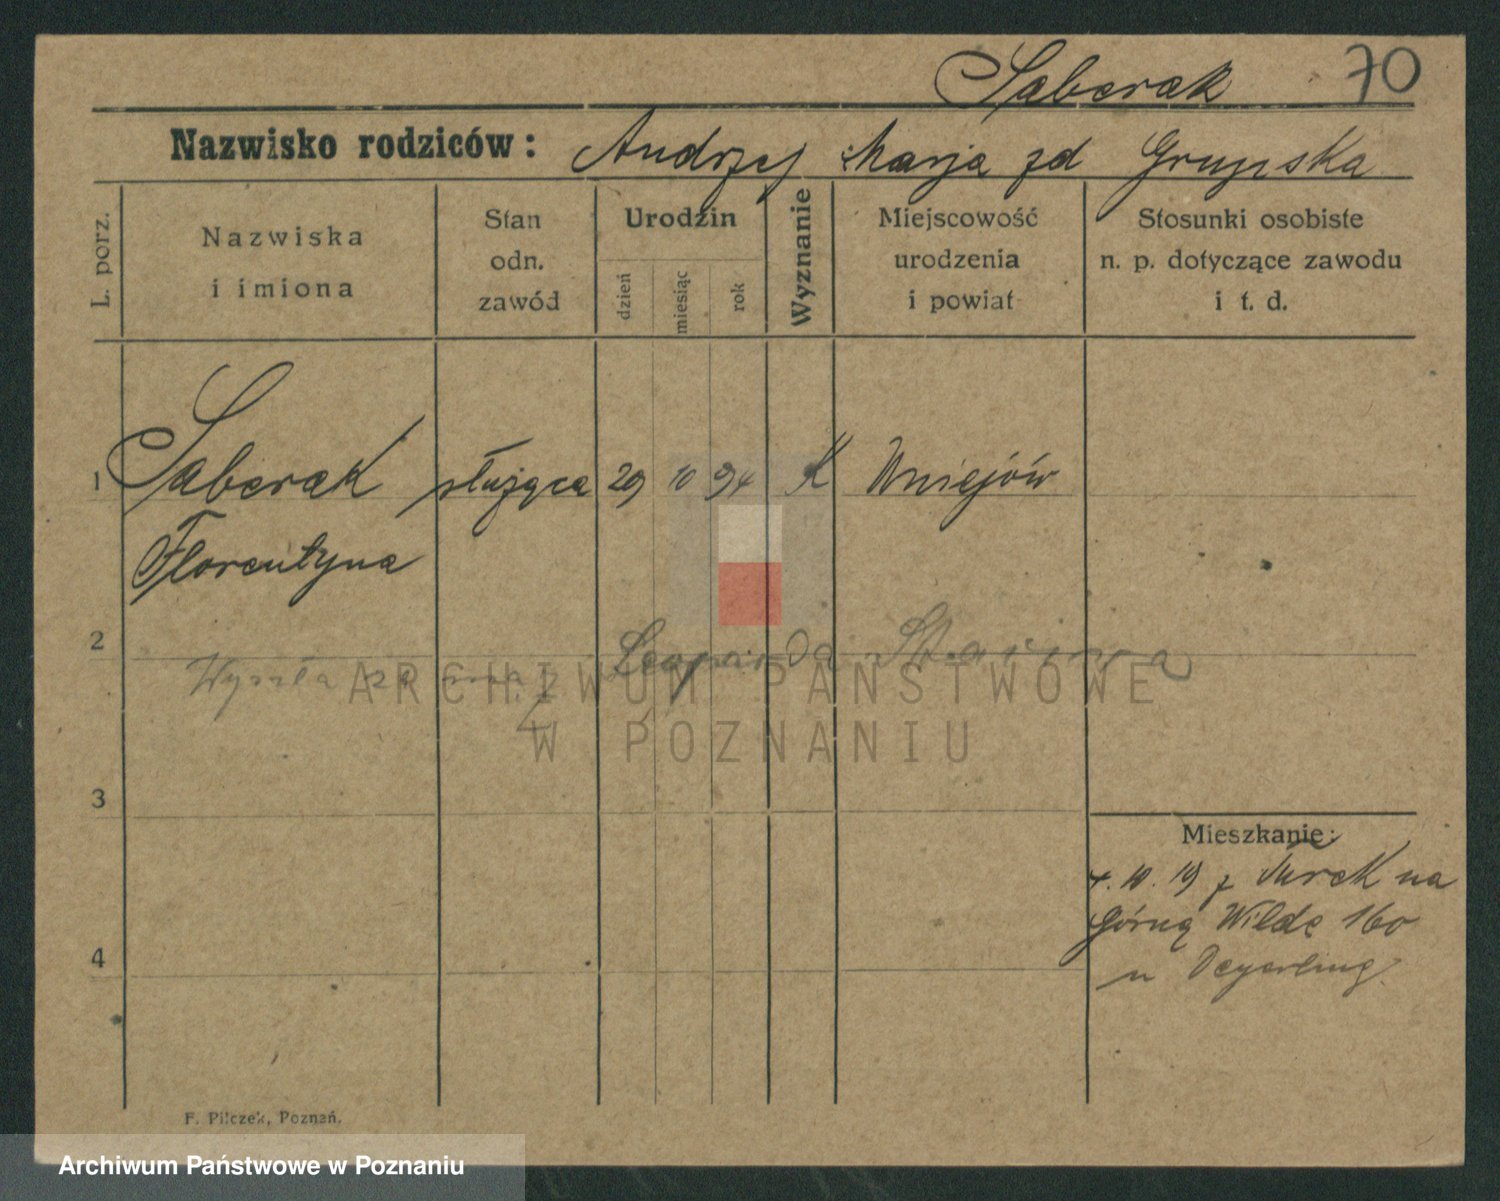 Saberak 70
Nazwisko rodziców: Andrzej Marja zd Grupska
L. porz.
Nazwiska
i imiona
Stan
odn.
zawód
Urodzin
dzień
miesiąc
rok
Wyznanie
Miejscowość
urodzenia
i powiat
Stosunki osobiste
n. p. dotyczące zawodu
i t. d.
1 Saberak służąca 29 10 94 K Uniejów
Florentyna
2
Wyszła za mąż
ARCHIWUM PAŃSTWOWE
W POZNANIU
3
Mieszkanie:
4. 10. 19 z Turek na
Górną Wildę 160
4
u
F. Pilczek, Poznań.
Archiwum Państwowe w Poznaniu